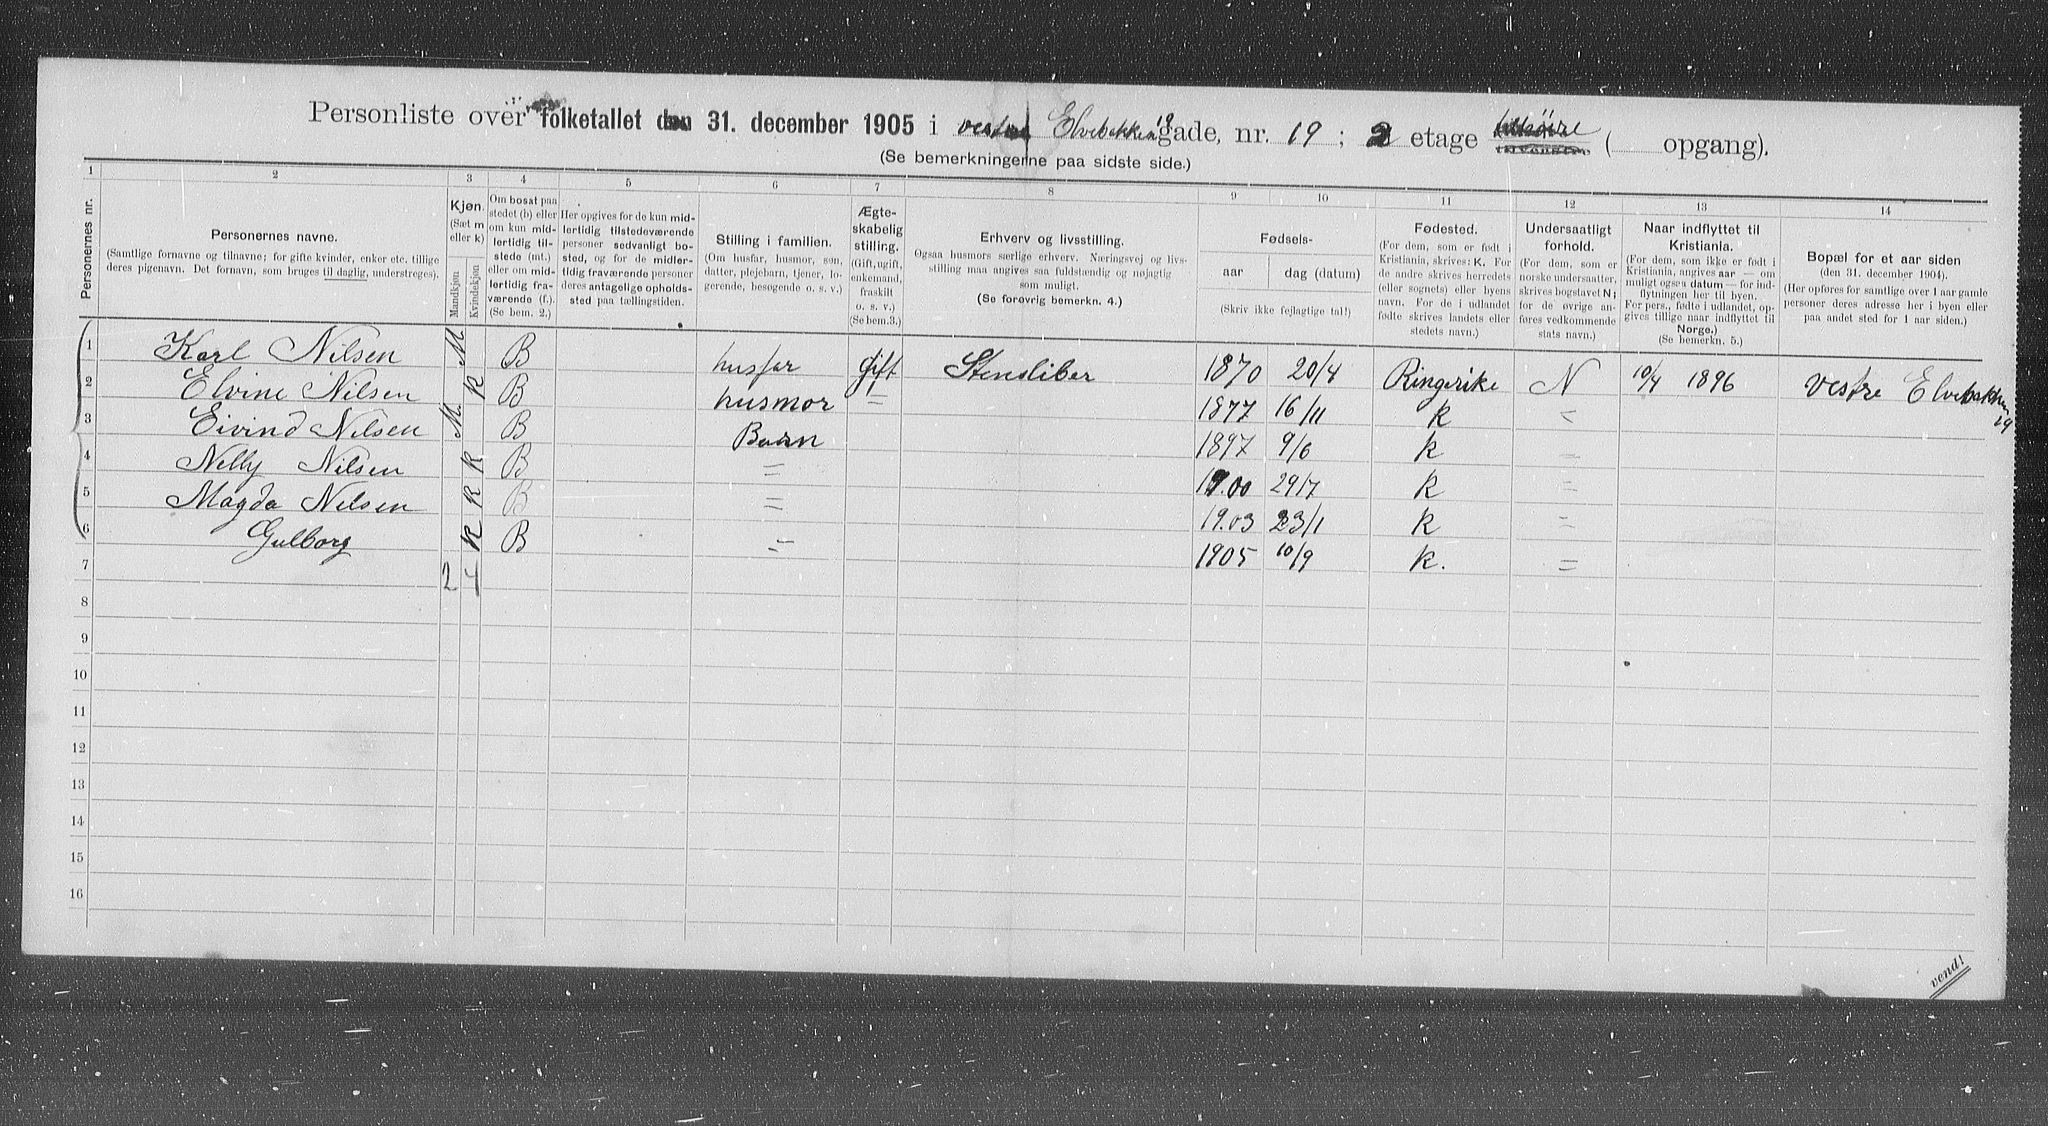 Personliste over folketallet den 31. december 1905 i vestre Elvebakken 19 gade, nr. 19 ; 2 etage ( opgang).
(Se bemerkningerne paa sidste side.)
1 2 3 4 5 6 7 8 9 10 11 12 13 14
Personernes nr.
Personernes navne.
(Samtlige fornavne og tilnavne; for gifte kvinder, enker etc. tillige
deres pigenavn. Det fornavn, som bruges til daglig, understreges).
Kjøn.
(Sæt m
eller k)
Mandkjøn
Kvindekjøn
Om bosat paa
stedet (b) eller
om kun mid-
lertidig til-
stede (mt.)
eller om mid-
lertidig fra-
værende (f.).
(Se bem. 2.)
Her opgives for de kun mid-
lertidig tilstedeværende
personer sedvanligt bo-
sted, og for de midler-
tidig fraværende personer
deres antagelige opholds-
sted paa tællingstiden.
Stilling i familien.
(Om husfar, husmor, søn,
datter, plejebarn, tjener, lo-
gerende, besøgende o. s. v.)
Ægte-
skabelig
stilling.
(Gift, ugift,
enkemand,
fraskilt
o. s. v.)
(Se bem.3.)
Erhverv og livsstilling.
Ogsaa husmors særlige erhverv. Næringsvej og livs-
stilling maa angives saa fuldstændig og nøjagtig
som muligt.
(Se forøvrig bemerkn. 4.)
Fødsels-
aar dag (datum)
(Skriv ikke fejlagtige tal!)
Fødested.
(For dem, som er født i
Kristiania, skrives: K. For
de andre skrives herredets
(eller sognets) eller byens
navn. For de i udlandet
fødte skrives landets eller
stedets navn.)
Undersaatligt
forhold.
(For dem, som er
norske undersaatter,
skrives bogstavet N;
for de øvrige an-
føres vedkommende
stats navn.)
Naar indflyttet til
Kristiania.
(For dem, som ikke er født i
Kristiania, angives aar — om
muligt ogsaa datum — for ind-
flytningen her til byen.
For pers., fødte i udlandet, op-
gives tillige naar indflyttet til
Norge.)
(Se bemerkn. 5.)
Bopæl for et aar siden
(den 31. december 1904).
(Her opføres for samtlige over 1 aar gamle
personer deres adresse her i byen eller
paa andet sted for 1 aar siden.)
1 Karl Nilsen M B husfar gift Stensliber 1870 20/4 Ringerike N 10/4 1896 vestre Elvebakken 29
2 Elvine Nilsen K B husmor = 1877 16/11 K =
3 Eivind Nilsen M. B Barn 1897 9/6 K =
4 Nelly Nilsen K B = 1900 29/7 K =
5 Magda Nilsen K B = 19.03 23/1 K =
6 Gulborg K B = 1905 10/9 K. =
7 2 4
8
9
10
11
12
13
14
15
16
vend!